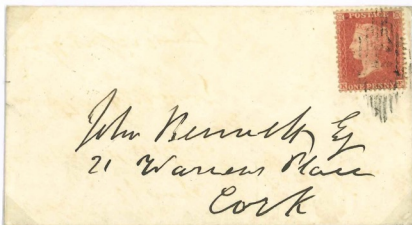 POSTAGE
ONE PENNY
John Bennett Esq
21 Warrens Place
Cork